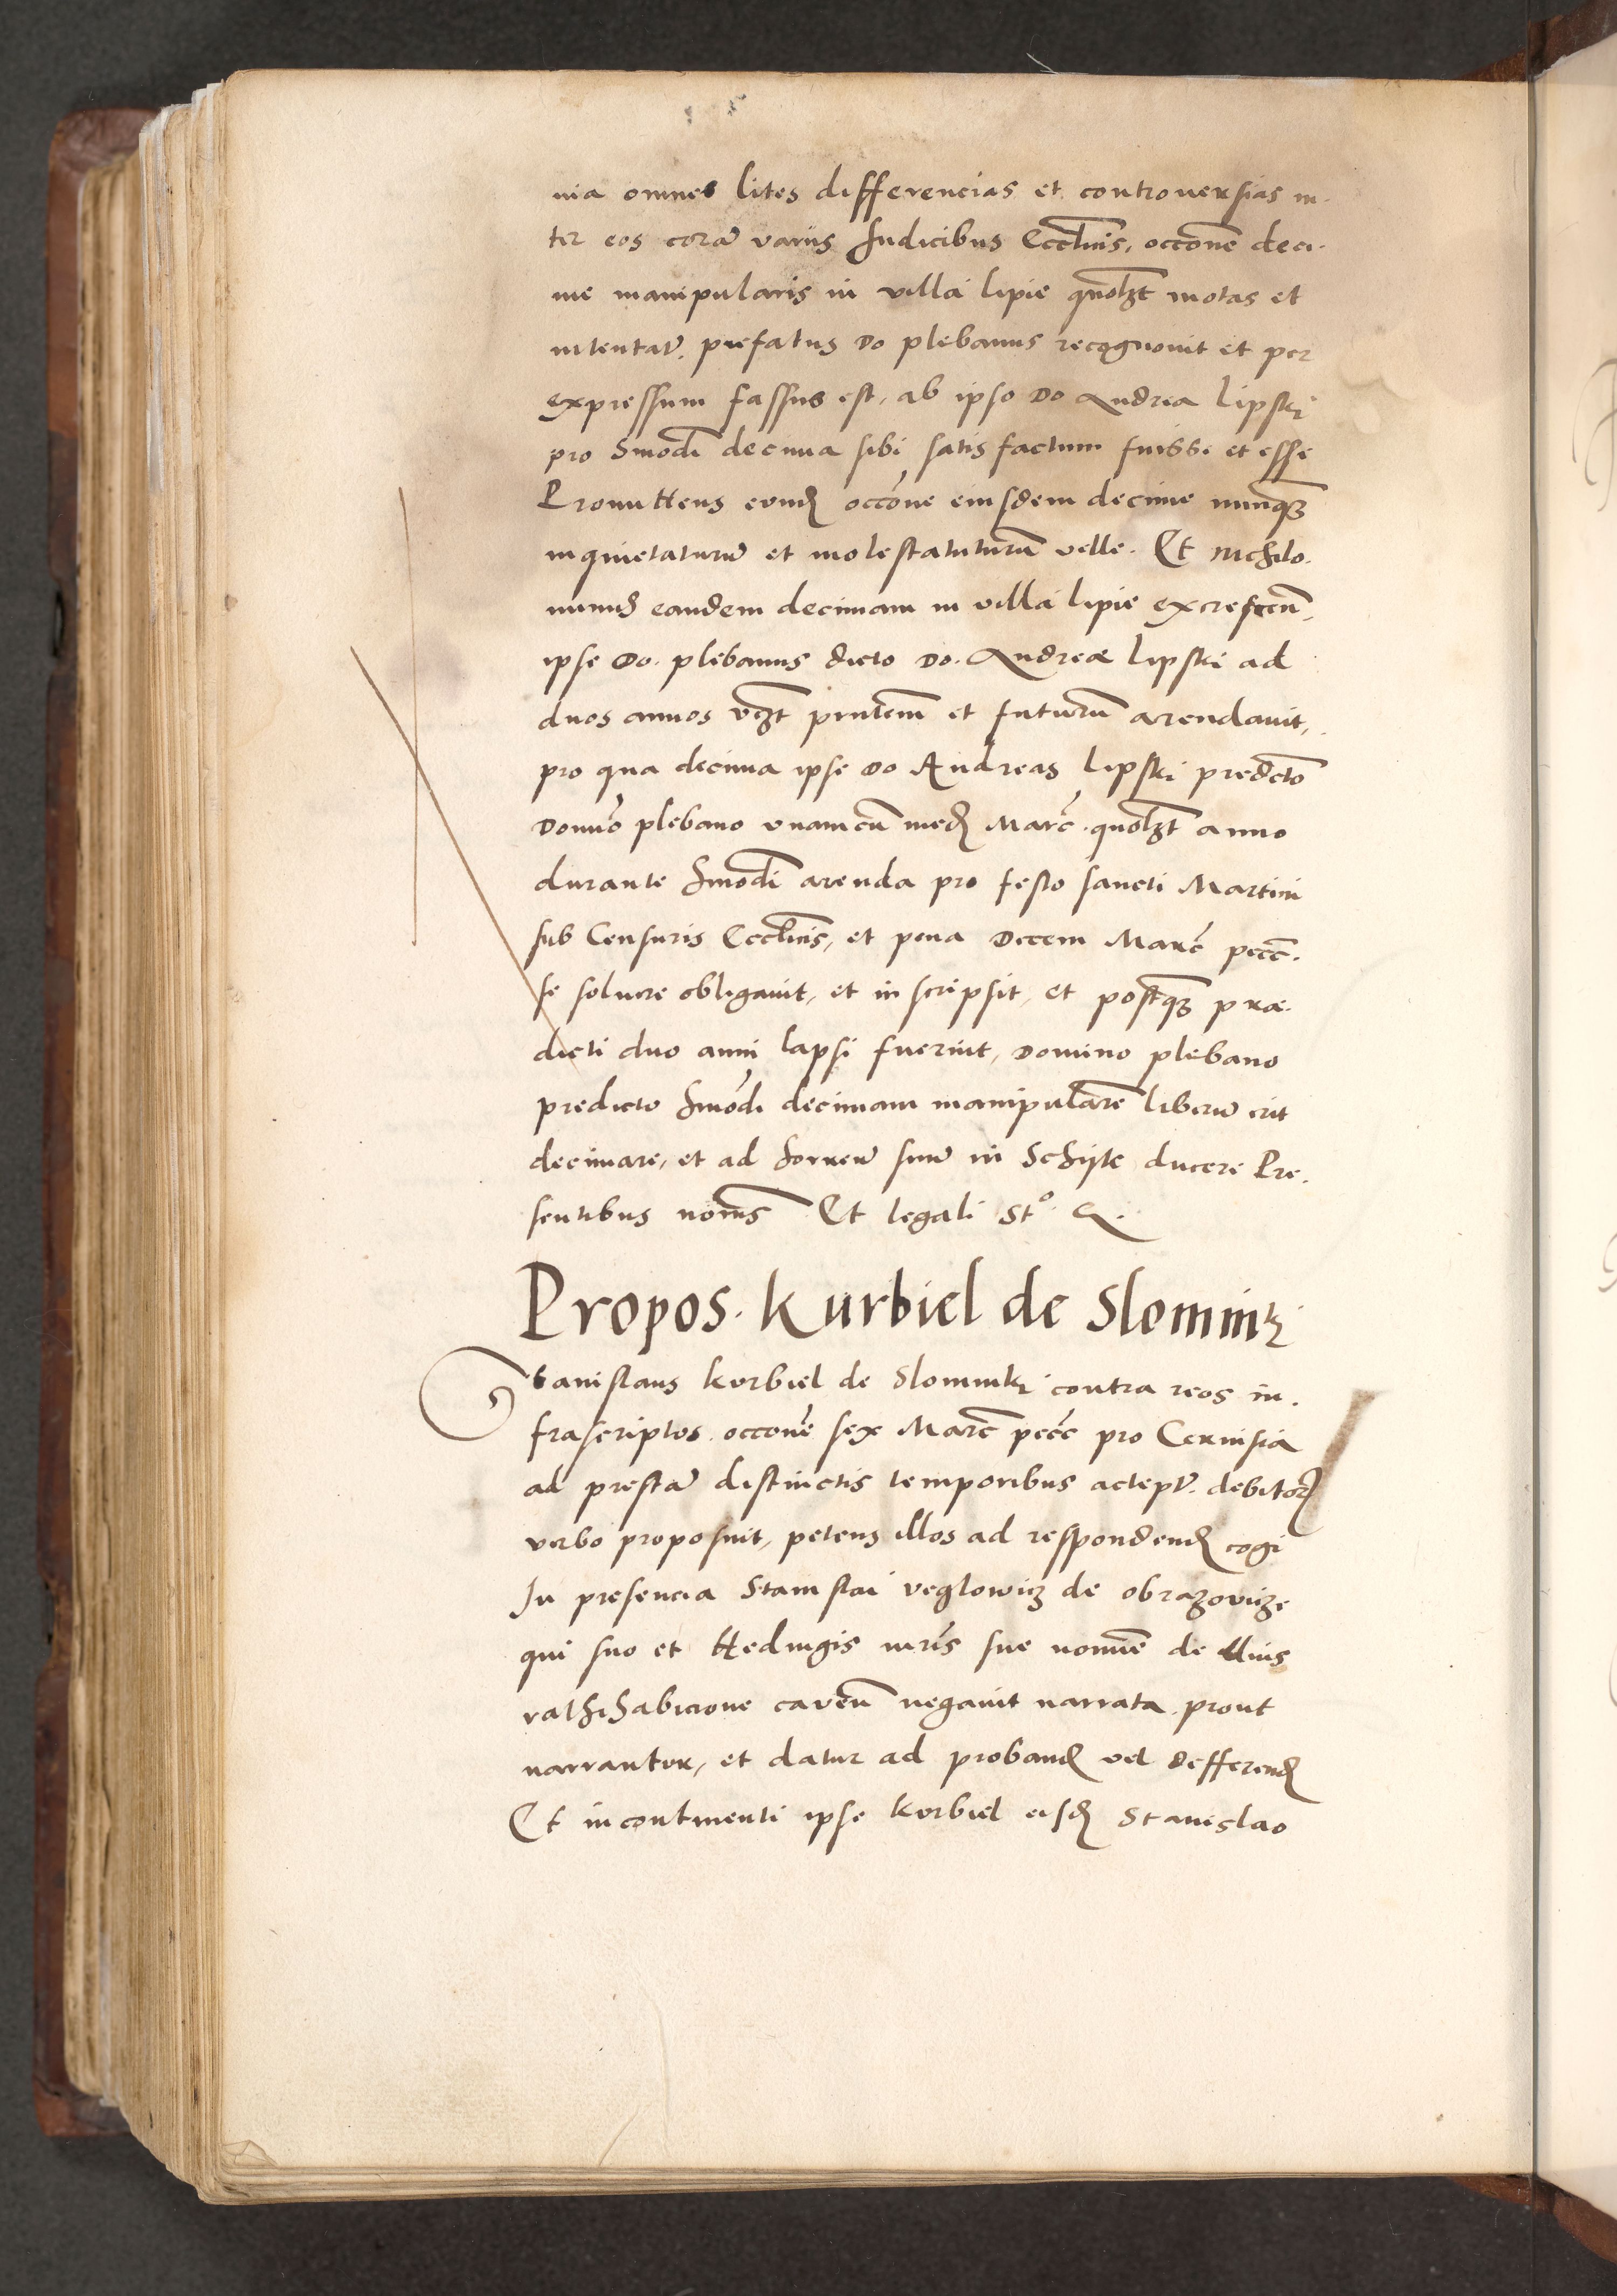 nia omnes lites differencias et controuersias in-
ter eos cora͂ varijs Judicibus Eccl͞icis, occo͞ne deci-
me manipularis in villa lipie quol͞zt motas et
intentat͂. prefatus Do plebanus recognouit et per
expressum fassus est, ab ipso Do Andrea Lipski
pro hmo͞di decima sibi satis factum fuisse et esse
Promittens eund͂ occo͞ne eiusdem decime nunq͞z
inquietaturu͂ et molestatuturu͂ velle. Et nichilo-
minus eandem decimam in villa lipie excrescen͂,
ipse Do. plebanus dicto Do. Andreæ Lipski ad
duos annos vz͞t pnte͞m et futuru͂ arendauit,
pro qua decima ipse Do Andreas Lipski predcto͞
Domi͞o plebano vnam cu͂ med͂ Marc͂. quol͞zt anno
durante hmo͞di arenda pro festo sancti Martini
sub Censuris Eccl͞icis, et pena Decem Marc͂ pecc͂.
se soluere obligauit, et inscripsit, et postq͞z præ-
dicti duo anni lapsi fuerint, Domino plebano
predicto hmo͞di decimam manipulare͞ liberu͂ erit
decimare, et ad horreu͂ suu͂ in Schijte ducere Pre-
sentibus no͞ris Et legali St⁰. &.
Propos. Kurbiel de Slomnik͂i
Stanislaus korbiel de Slomniki contra reos in-
frascriptos occo͞ne sex Marc͂ pecc͂ pro Ceruisia
ad presta͂ distinctis temporibus accept͂. debitor͂
verbo proposuit, petens illos ad respondend͂ cogi
In presencia Stanislai veglowicz de obrazouicze
qui suo et Heduigis vxr͂is sue nomi͞e de cuius
rathihabicione cauen͂ negauit narrata prout
narrantur, et datur ad proband͂ vel defferend͂
Et incontinenti ipse korbiel eisd͂ Stanislao